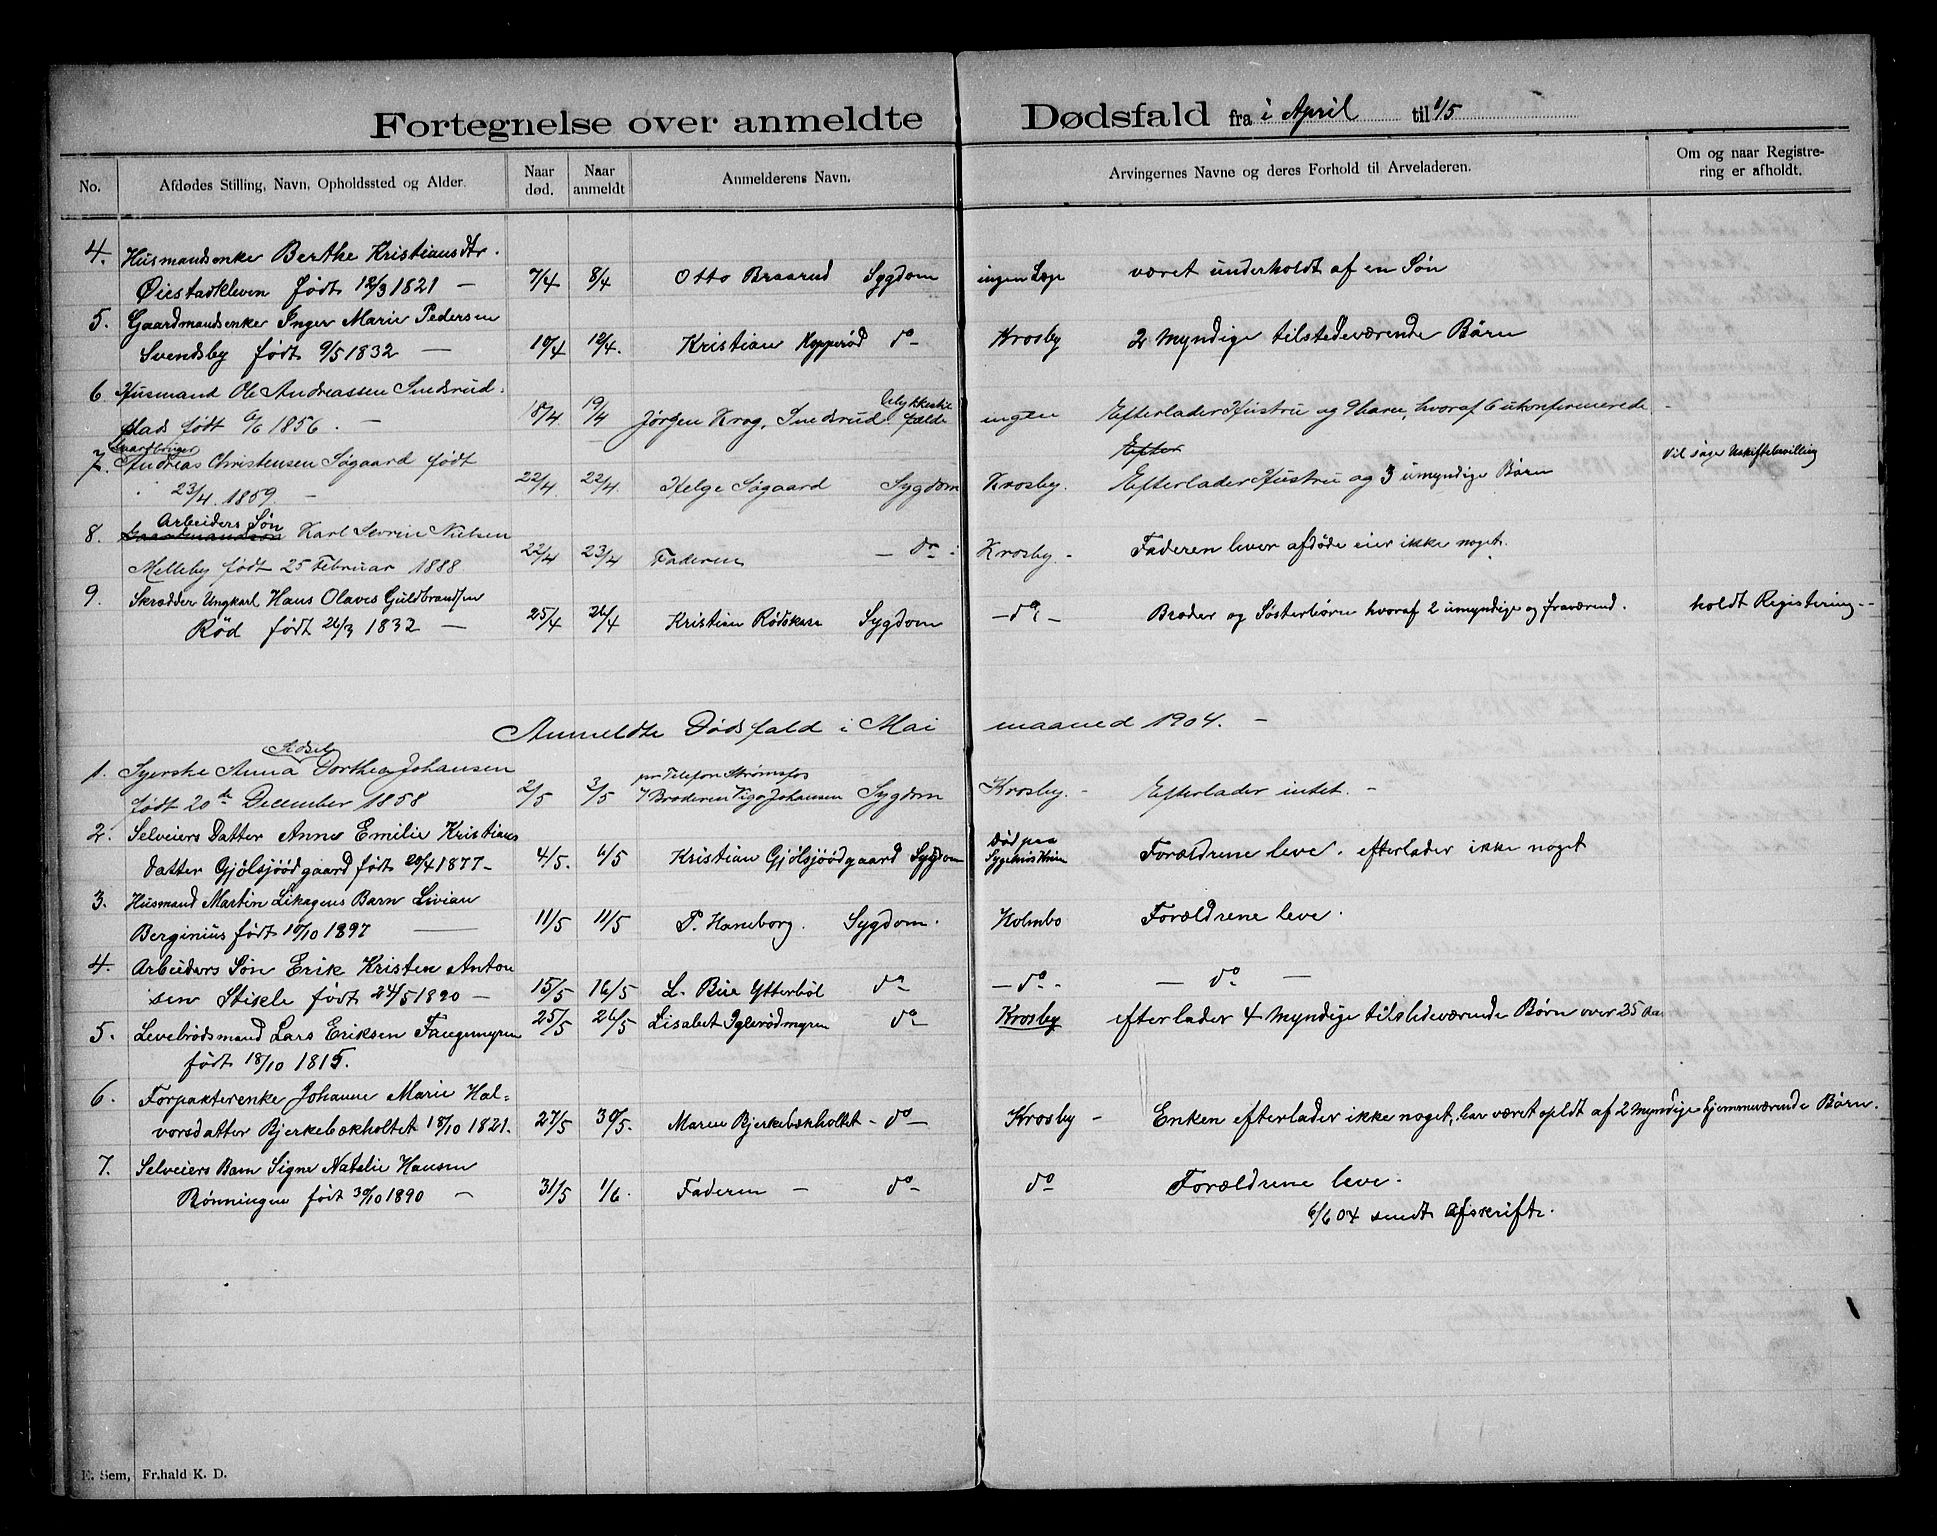 Fortegnelse over anmeldte Dødsfald fra i April til 1/5
No. Afdødes Stilling, Navn, Opholdssted og Alder. Naar død. Naar anmeldt Anmelderens Navn. Arvingernes Navne og deres Forhold til Arveladeren. Om og naar Registrering er afholdt.
4. Husmandsenke Berthe Kristiansdtr.
Øiestadkleven født 12/3 1821 — 7/4 8/4 Otto Braarud Sygdom ingen Læge været underholdt af en Søn
5. Gaardmandsenke Inger Marie Pedersen
Svendsby født 9/5 1832 — 10/4 12/4. Kristian Kopperød do — Krosby 2 Myndige tilstedeværende Børn
6 Husmand Ole Andreassen Smedsrud
plads født 6/6 1856. — 18/4 19/4 Jørgen Krog, Smedsrud Ulykkestilfælde ingen Efterlader Hustru og 9 barn, hvoraf 6 ukonfirmerede —
Gaardbruger Efter
7. Andreas Christensen Søgaard født
23/4 1859 — 22/4 22/4. Helge Søgaard Sygdom Krosby. Efterlader Hustru og 3 umyndige Børn vil søge Uskiftebevilling
Arbeiders Søn
8. Gaardmandssøn Karl Severin Nielsen
Melleby født 25 Februar 1888 22/4 23/4 Faderen — do — Krosby — Faderen lever afdøde eier ikke noget.
9. Skrædder Ungkarl Hans Olaves Guldbrandsen
Rød født 26/3 1832 — 25/4 26/4 Kristian Rødskase Sygdom — do — Brøder og Søsterbørn hvoraf 2 umyndige og fraværend. holdt Registering —
Anmeldte Dødsfald i Mai maaned 1904. —
Adsel
1. Syerske Anna Dorthea Johansen pr Telefon Strømsfos
født 20de December 1858 2/5 3/5 Broderen Vigo Johansen Sygdom Krosby. — Efterlader intet. —
2. Selveiers Datter Anne Emilie Kristians Død paa
datter Gjølsjøødgaard født 20/4 1877 — 4/5. 6/5 Kristian Gjølsjøødgaard Sygdom Forældrene leve. efterlader ikke noget
3. Husmand Martin Likagens Barn Livian
Berginius født 10/10 1897 — 11/5 11/5 P. Haneborg. Sygdom. Holmbo Forældrene leve.
4. Arbeiders Søn Erik Kristen Anton
sen Stikle født 24/5 1890 — 15/5 16/5 L. Bue Ytterbøl do — do — — do —
5. Levebrødsmand Lars Eriksen Taugemyren 25/5 26/5 Lisabet Iglerødmyren do — Krosby efterlader 4 Myndige tilstedeværende Børn over 25 Aar
født 18/10 1815.
6. Forpakterenke Johanne Marie Hal=
vorsdatter Bjerkebækholtet 18/10 1821. 27/5 30/5. Maren Bjerkebækholtet — do — Krosby — Enken efterlader ikke noget, har været opldt af 2 Myndige hjemmværende Børn.
7. Selveiers Barn Signe Natalie Hansen
Rønningen født 30/10 1890 — 31/5 1/6. Faderen — do — do Forældrene leve.
6/6 04 sendt afskrift.
E. Sem, Fr.hald K. D.